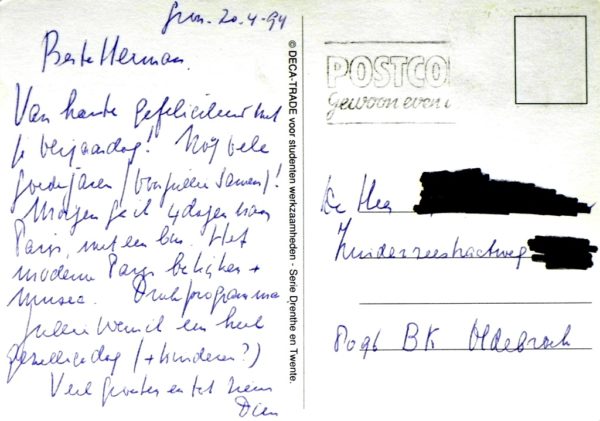 Gron. 20-4-94
Beste Herman.
Van harte gefeliciteerd met
je verjaardag! Nog vele
goede jaren (van jullie samen)!
Morgen ga ik 4 dagen naar
Parijs, met een bus. Het
moderne Parijs bekijken +
musea. Druk programma
Jullie wens ik een heel
gezellige dag (+ kinderen?)
Veel groeten en tot ziens
Dien
© DECA-TRADE voor studenten werkzaamheden - Serie Drenthe en Twente.
POSTCO
Gewoon even
De Heer
Zuiderzeestraatweg
8096 BK Oldebroek